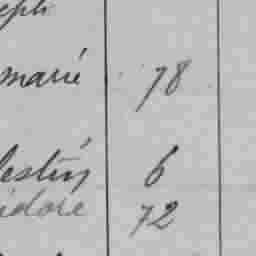 eph
marié 78
lestin 6
idore 72